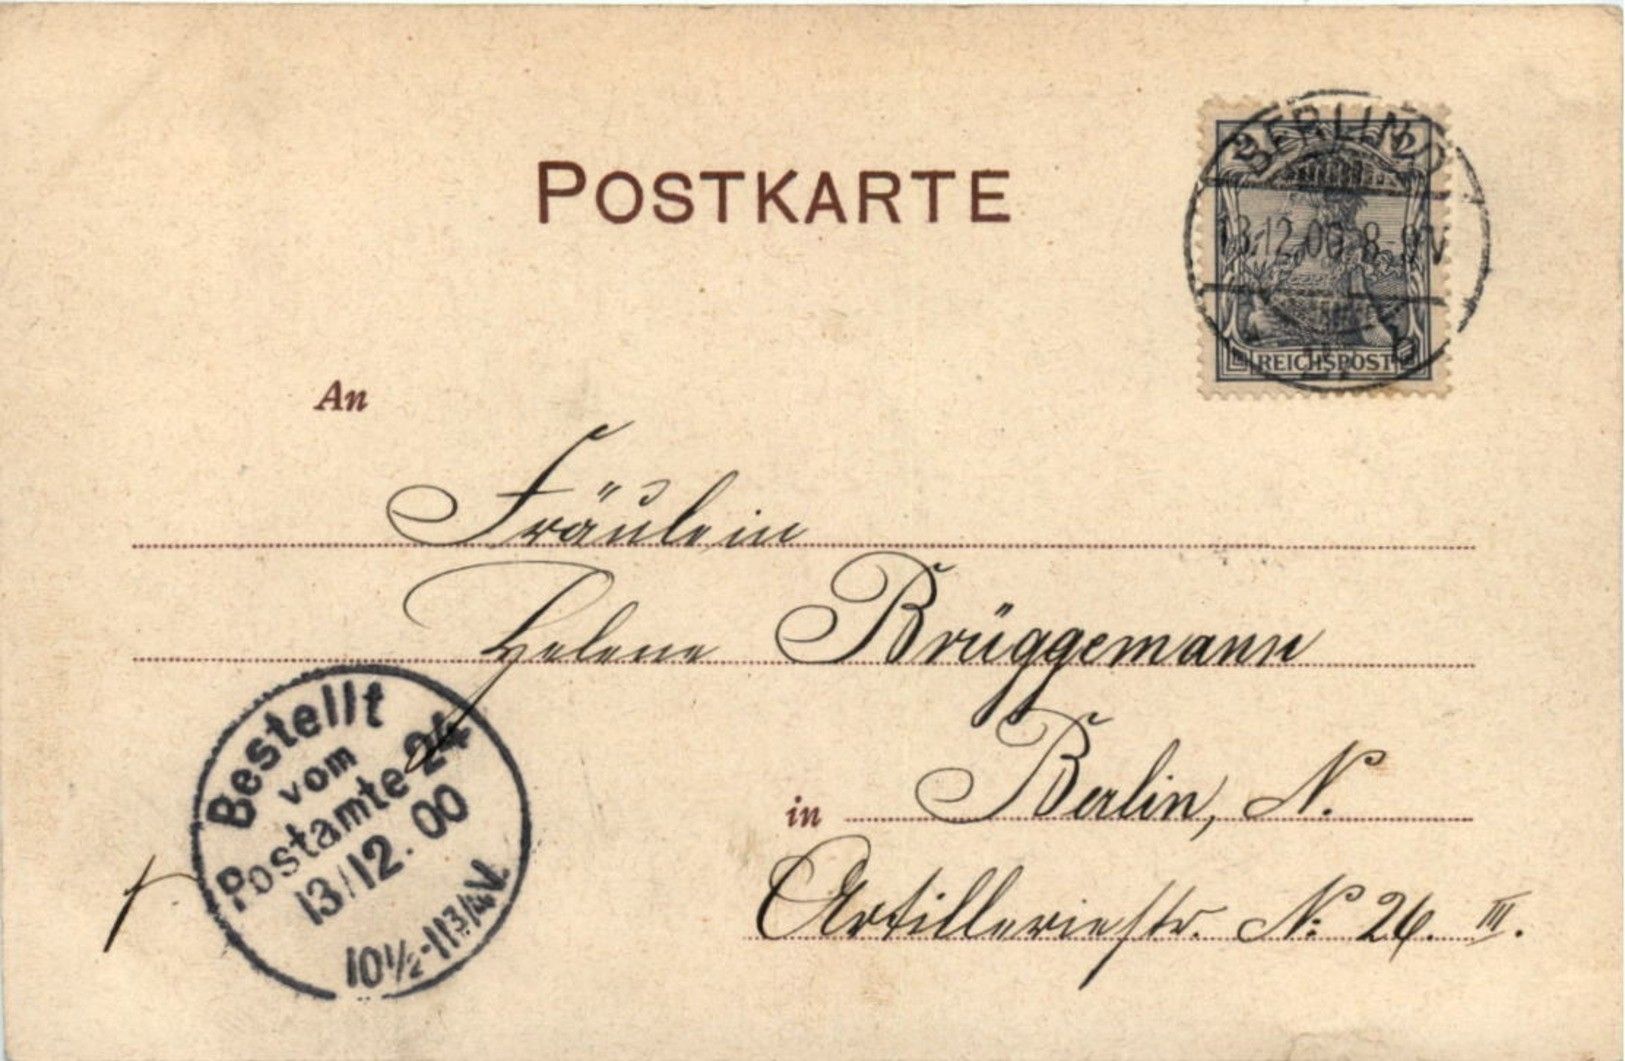 POSTKARTE
BERLIN O
13.12.00. 8-9V
REICHSPOST
An
Fräulein
Helene Brüggemann
in Berlin, N.
Artilleriestr. No: 26. III.
Bestellt
vom
Postamte 24
13/12.00
10½-11¾V.